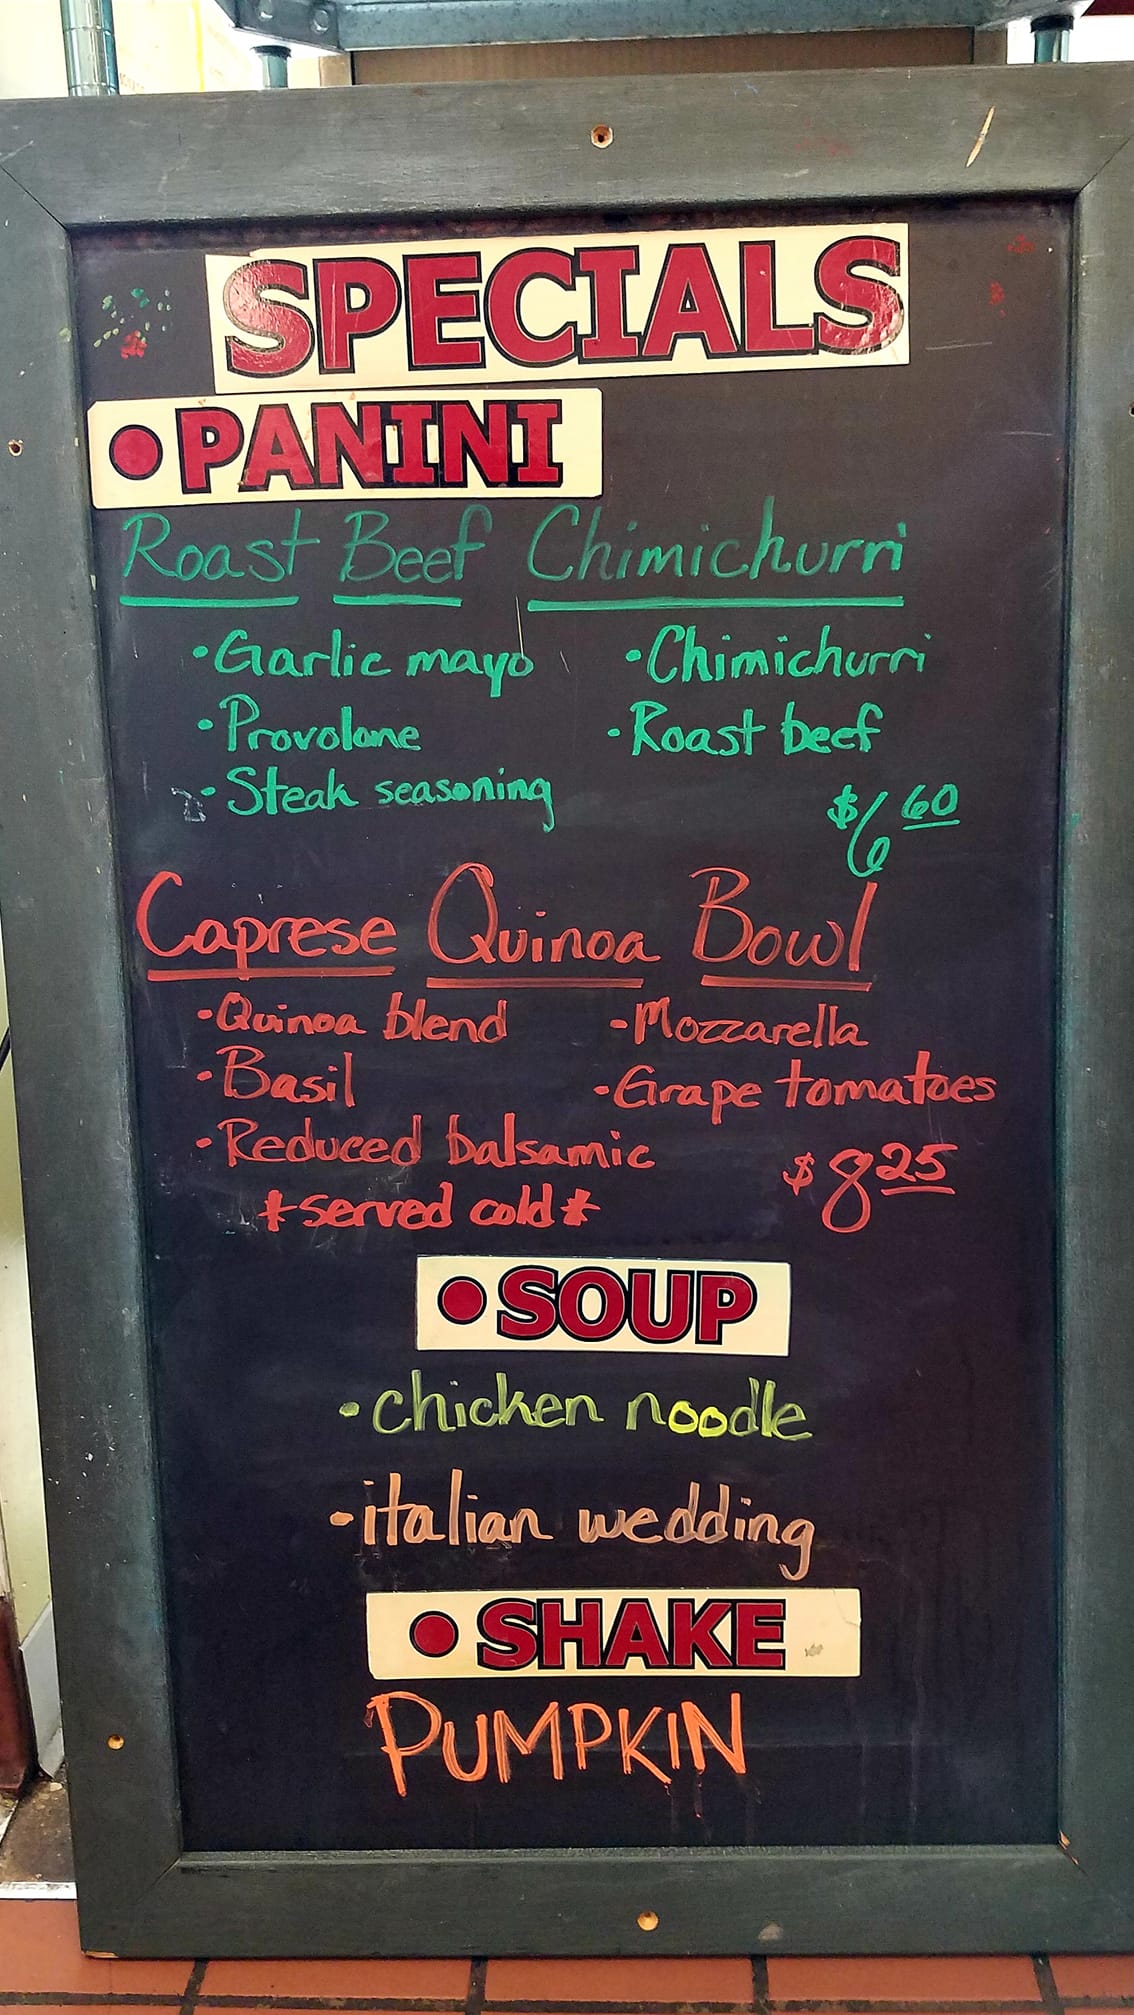 SPECIALS
• PANINI
Roast Beef Chimichurri
• Garlic mayo
• Chimichurri
• Provolone
• Roast beef
• Steak seasoning
$6 60
Caprese Quinoa Bowl
• Quinoa blend
• Mozzarella
• Basil
• Grape tomatoes
• Reduced balsamic
$8 25
*served cold*
• SOUP
• chicken noodle
• italian wedding
• SHAKE
PUMPKIN